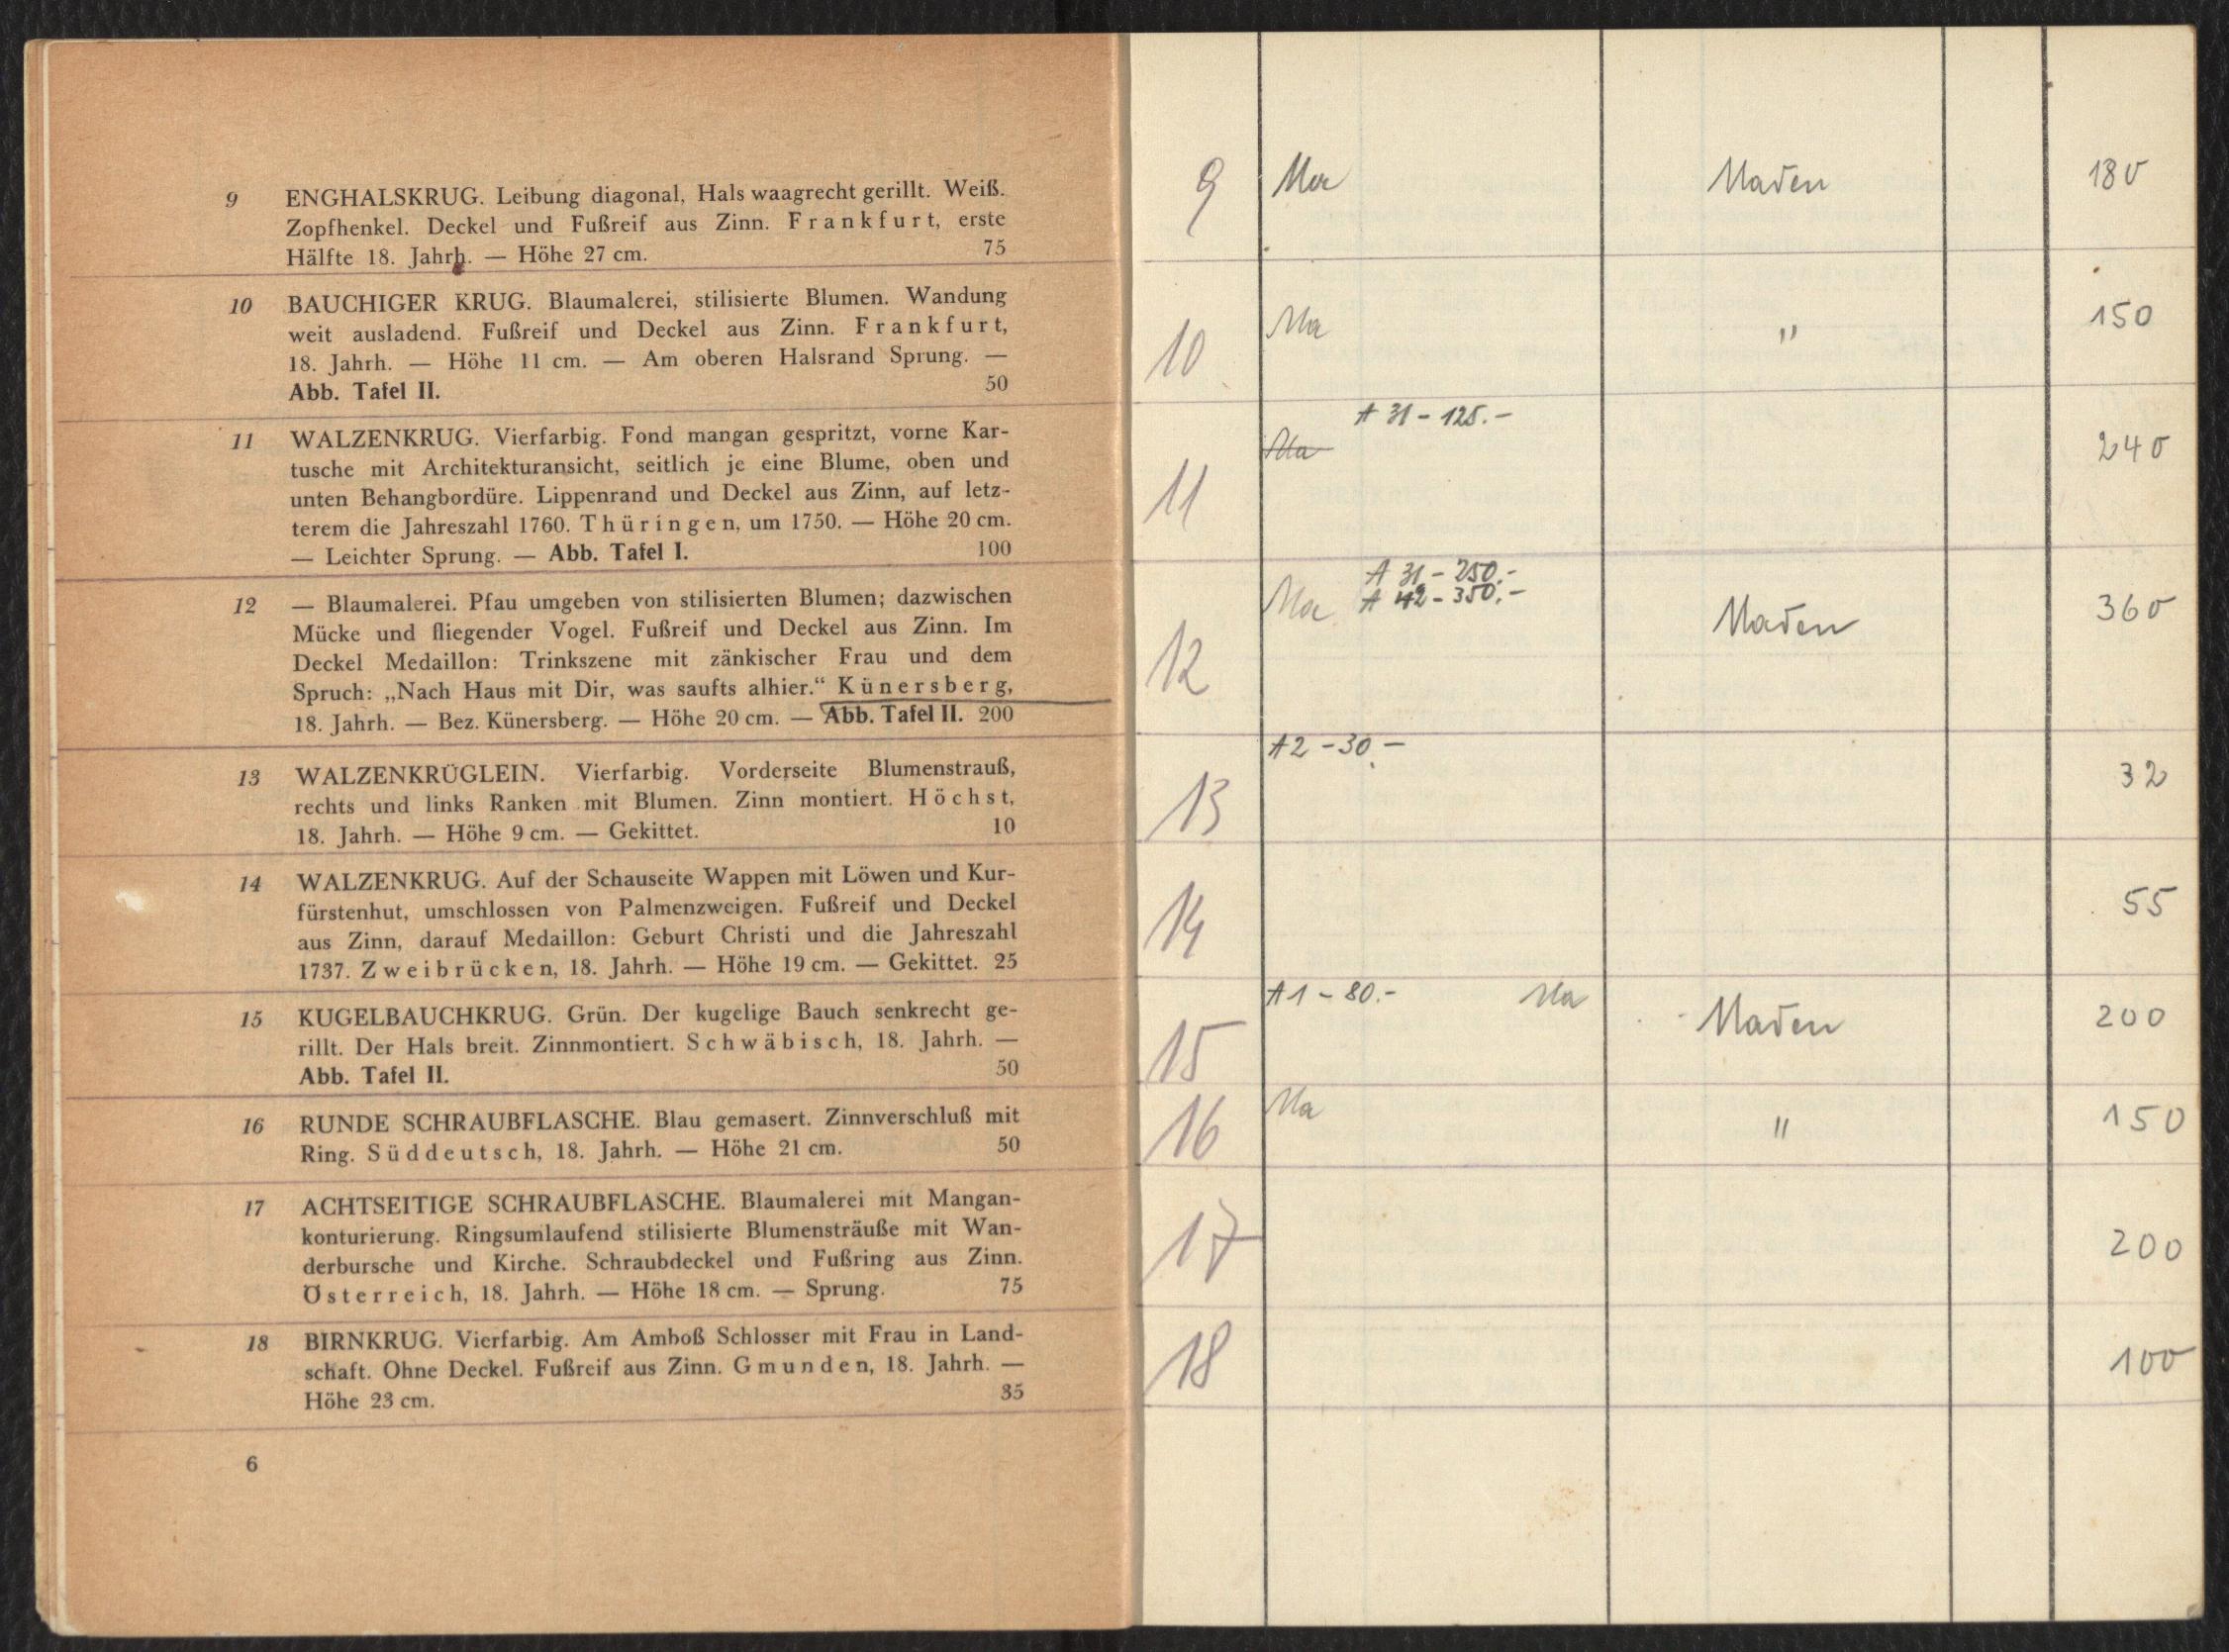 9 ENGHALSKRUG. Leibung diagonal, Hals waagrecht gerillt. Weiß.
Zopfhenkel. Deckel und Fußreif aus Zinn. Frankfurt, erste
Hälfte 18. Jahrh. — Höhe 27 cm. 75
10 BAUCHIGER KRUG. Blaumalerei, stilisierte Blumen. Wandung
weit ausladend. Fußreif und Deckel aus Zinn. Frankfurt,
18. Jahrh. — Höhe 11 cm. — Am oberen Halsrand Sprung. —
Abb. Tafel II. 50
11 WALZENKRUG. Vierfarbig. Fond mangan gespritzt, vorne Kar-
tusche mit Architekturansicht, seitlich je eine Blume, oben und
unten Behangbordüre. Lippenrand und Deckel aus Zinn, auf letz-
terem die Jahreszahl 1760. Thüringen, um 1750. — Höhe 20 cm.
— Leichter Sprung. — Abb. Tafel I. 100
12 — Blaumalerei. Pfau umgeben von stilisierten Blumen; dazwischen
Mücke und fliegender Vogel. Fußreif und Deckel aus Zinn. Im
Deckel Medaillon: Trinkszene mit zänkischer Frau und dem
Spruch: „Nach Haus mit Dir, was saufts alhier.“ Künersberg,
18. Jahrh. — Bez. Künersberg. — Höhe 20 cm. — Abb. Tafel II. 200
13 WALZENKRÜGLEIN. Vierfarbig. Vorderseite Blumenstrauß,
rechts und links Ranken mit Blumen. Zinn montiert. Höchst,
18. Jahrh. — Höhe 9 cm. — Gekittet. 10
14 WALZENKRUG. Auf der Schauseite Wappen mit Löwen und Kur-
fürstenhut, umschlossen von Palmenzweigen. Fußreif und Deckel
aus Zinn, darauf Medaillon: Geburt Christi und die Jahreszahl
1737. Zweibrücken, 18. Jahrh. — Höhe 19 cm. — Gekittet. 25
15 KUGELBAUCHKRUG. Grün. Der kugelige Bauch senkrecht ge-
rillt. Der Hals breit. Zinnmontiert. Schwäbisch, 18. Jahrh. —
Abb. Tafel II. 50
16 RUNDE SCHRAUBFLASCHE. Blau gemasert. Zinnverschluß mit
Ring. Süddeutsch, 18. Jahrh. — Höhe 21 cm. 50
17 ACHTSEITIGE SCHRAUBFLASCHE. Blaumalerei mit Mangan-
konturierung. Ringsumlaufend stilisierte Blumensträuße mit Wan-
derbursche und Kirche. Schraubdeckel und Fußring aus Zinn.
Österreich, 18. Jahrh. — Höhe 18 cm. — Sprung. 75
18 BIRNKRUG. Vierfarbig. Am Amboß Schlosser mit Frau in Land-
schaft. Ohne Deckel. Fußreif aus Zinn. Gmunden, 18. Jahrh. —
Höhe 23 cm. 35
6
9 Ma Maden 180
10 Ma " 150
A 31 - 125.-
11 Ma 240
A 31 - 250.-
12 Ma A 42 - 350.- Maden 360
A 2 - 30.-
13 32
14 55
15 A 1 - 80.- Ma Maden 200
16 Ma " 150
17 200
18 100